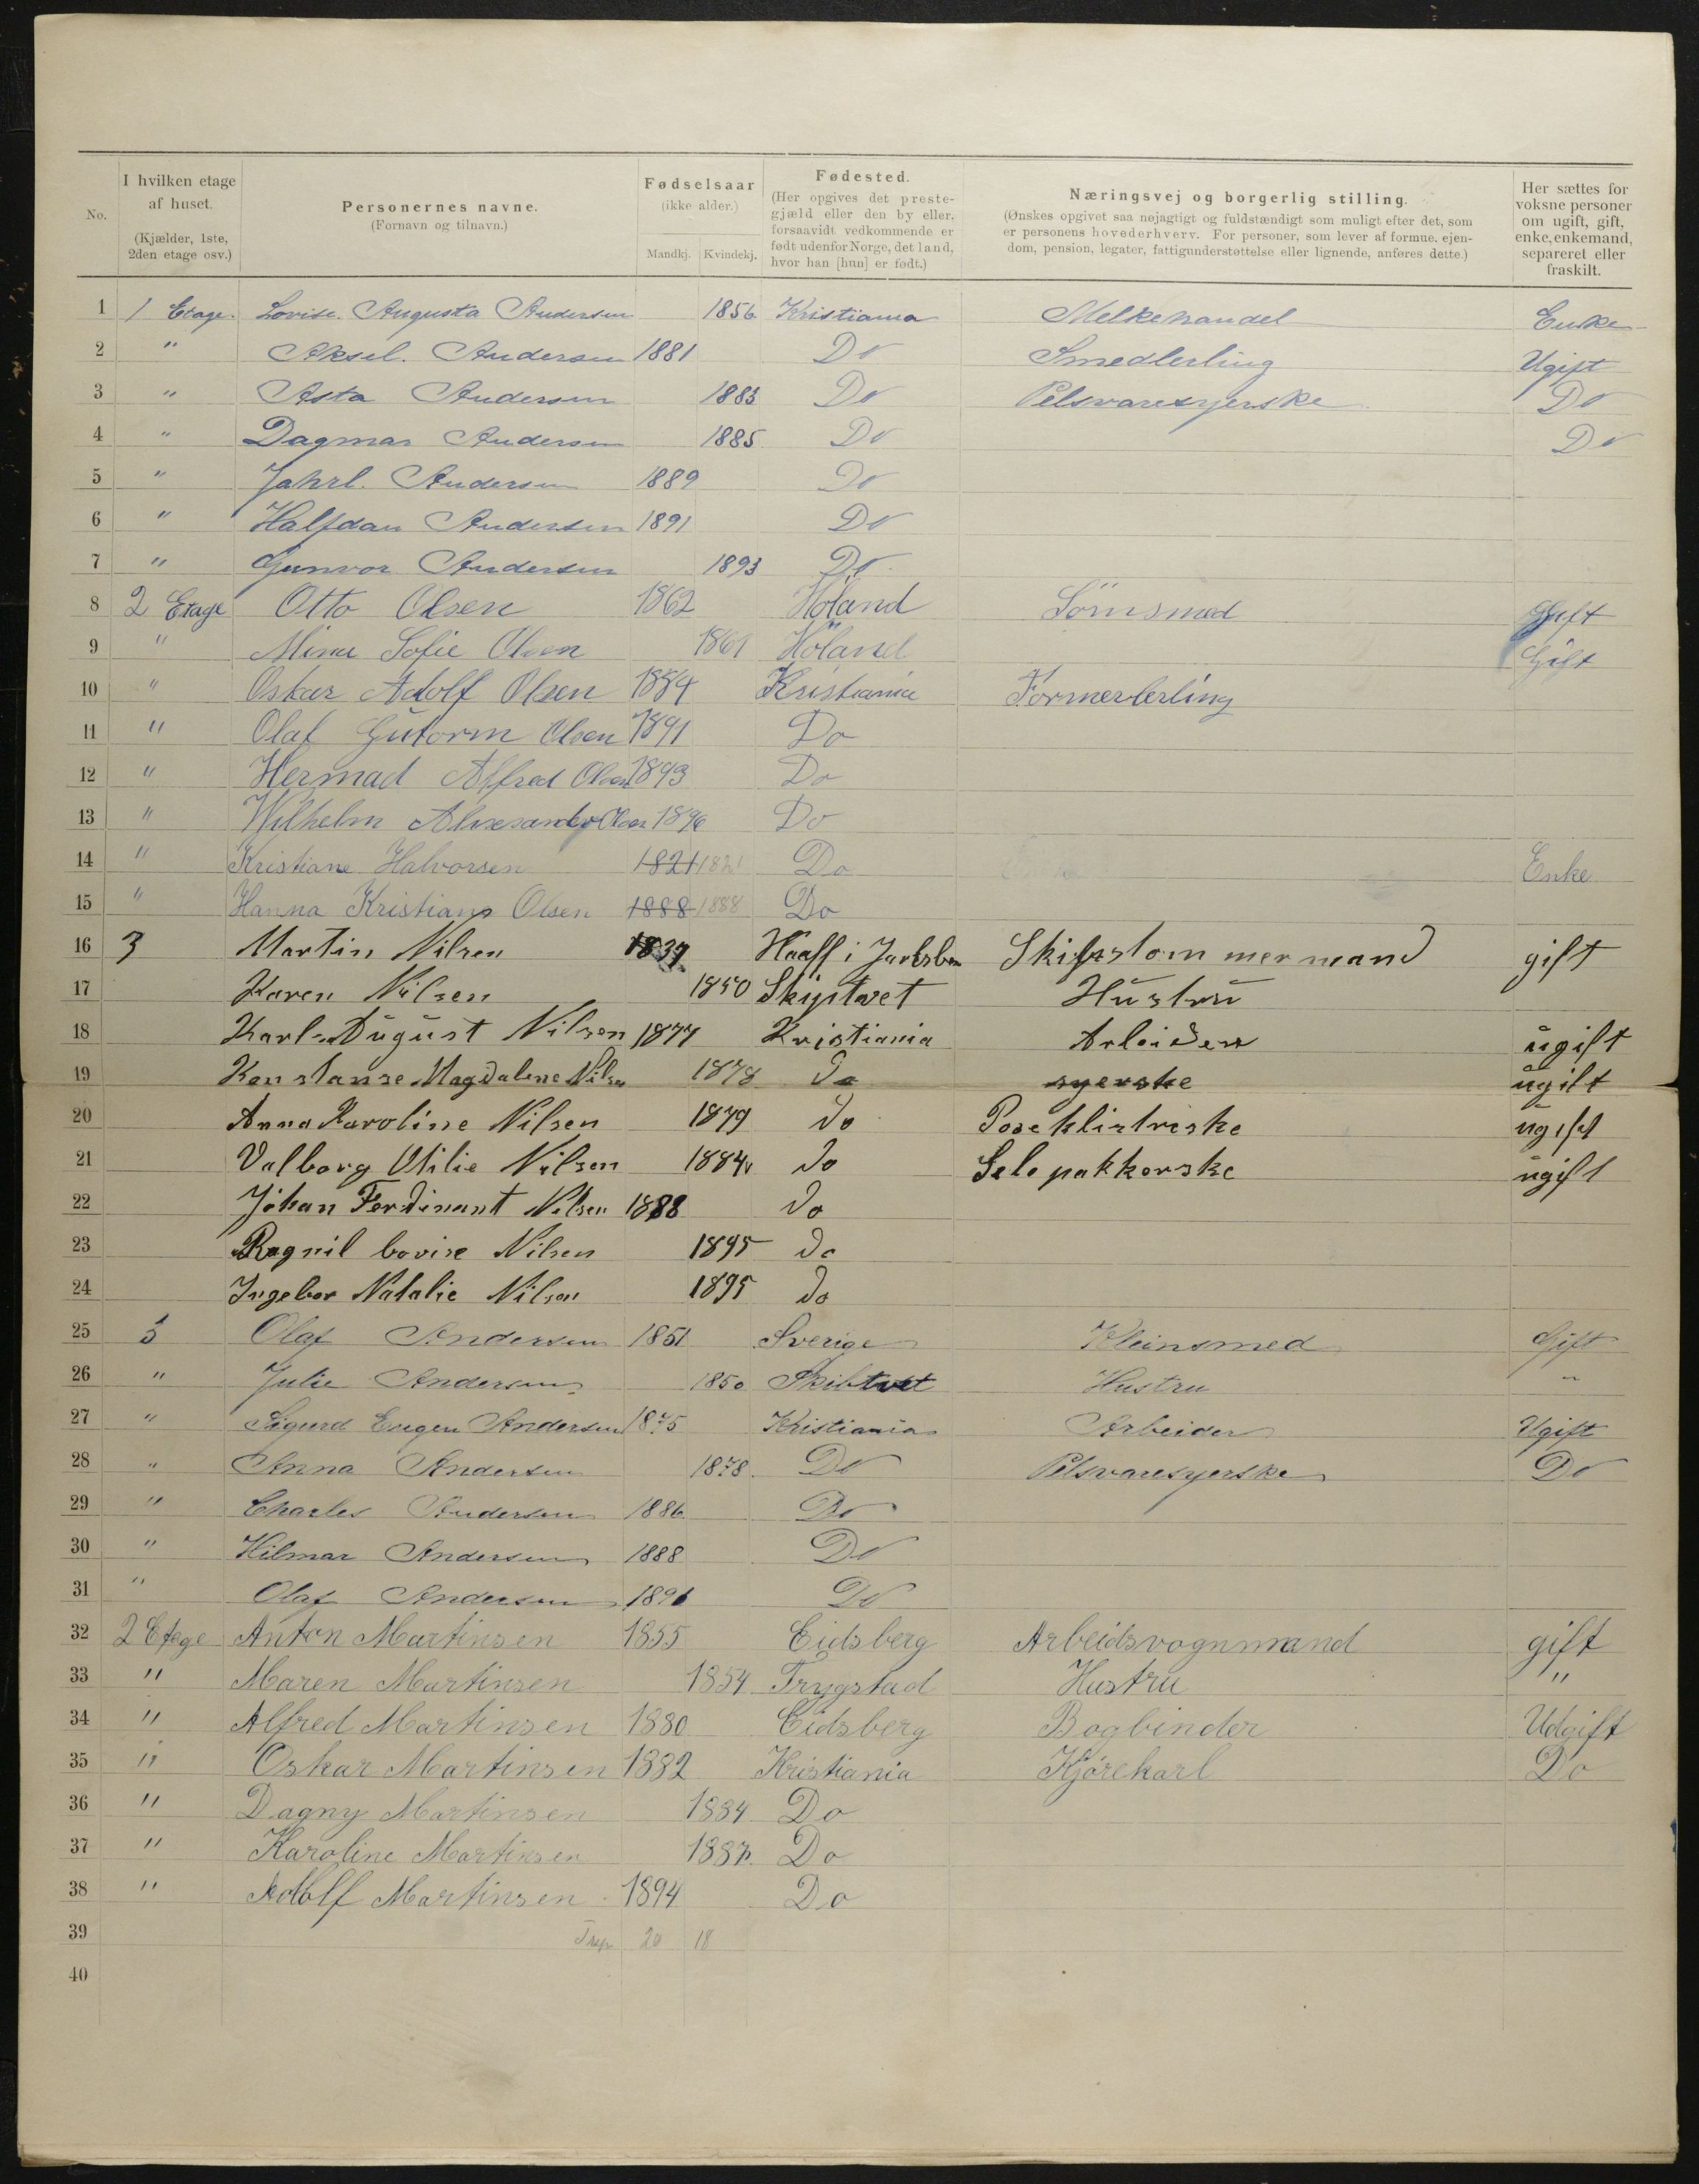 No.
I hvilken etage af huset. (Kjælder, 1ste, 2den etage osv.)
Personernes navne. (Fornavn og tilnavn.)
Fødselsaar (ikke alder.) Mandkj. Kvindekj.
Fødested. (Her opgives det prestegjæld eller den by eller, forsaavidt vedkommende er født udenfor Norge, det land, hvor han [hun] er født.)
Næringsvej og borgerlig stilling. (Ønskes opgivet saa nøjagtigt og fuldstændigt som muligt efter det, som er personens hovederhverv. For personer, som lever af formue, ejendom, pension, legater, fattigunderstøttelse eller lignende, anføres dette.)
Her sættes for voksne personer om ugift, gift, enke, enkemand, separeret eller fraskilt.
1 1 Etage. Lovise. Augusta Andersen 1856 Kristiania Melkehandel Enke
2 " Aksel. Andersen 1881 Do Smedlerling Ugift
3 " Asta Andersen 1883 Do Pelsvaresyerske Do
4 " Dagmar Andersen 1885 Do Do
5 " Jahrl. Andersen 1889 Do
6 " Halfdan Andersen 1891 Do
7 " Gunvor Andersen 1893 Do
8 2 Etage Otto Olsen 1862 Höland Sömsmed Gift
9 " Mina Sofie Olsen 1861 Höland Gift
10 " Oskar Adolf Olsen 1884 Kristiania Formerlerling
11 " Olaf Gutorm Olsen 1891 Do
12 " Hermad Alfred Olsen 1893 Do
13 " Wilhelm Olsen 1896 Do
14 " Kristiane Halvorsen 1821 1821 Do Enke
15 " Hanna Kristiane Olsen 1888 1888 Do
16 3 Martin Nilsen i gift
17 Karen Nilsen 1850 Skiptvet Hustru
18 Karl August Nilsen 1877 Kristiania Arbeider ugift
19 Konstanse Magdalene Nilsen 1878 Do syerske ugift
20 Anna Karoline Nilsen 1879 Do Poseklistreske ugift
21 Valborg Otilie Nilsen 1884 Do pakkerske ugift
22 Johan Ferdinant Nilsen 1888 Do
23 Ragnil Lovise Nilsen 1895 Do
24 Ingebor Natalie Nilsen 1895 Do
25 3 Olaf Andersen 1851 Sverige Kleinsmed Gift
26 " Julie Andersen 1850 Skibtvet Hustru "
27 " Sigurd Eugen Andersen 1875 Kristiania Arbeider Ugift
28 " Anna Andersen 1878. Do Pelsvaresyerske Do
29 " Charles Andersen 1886 Do
30 " Hilmar Andersen 1888 Do
31 " Olaf Andersen Do
32 2 Etege Anton Martinsen 1855 Eidsberg Arbeidsvognmand gift
33 " Maren Martinsen 1854 Trygstad Hustru "
34 " Alfred Martinsen 1880 Eidsberg Bogbinder Udgift
35 " Oskar Martinsen 1882 Kristiania Kjørekarl Do
36 " Dagny Martinsen 1884 Do
37 " Karoline Martinsen 1887. Do
38 " Adolf Martinsen 1894 Do
39 20 18
40